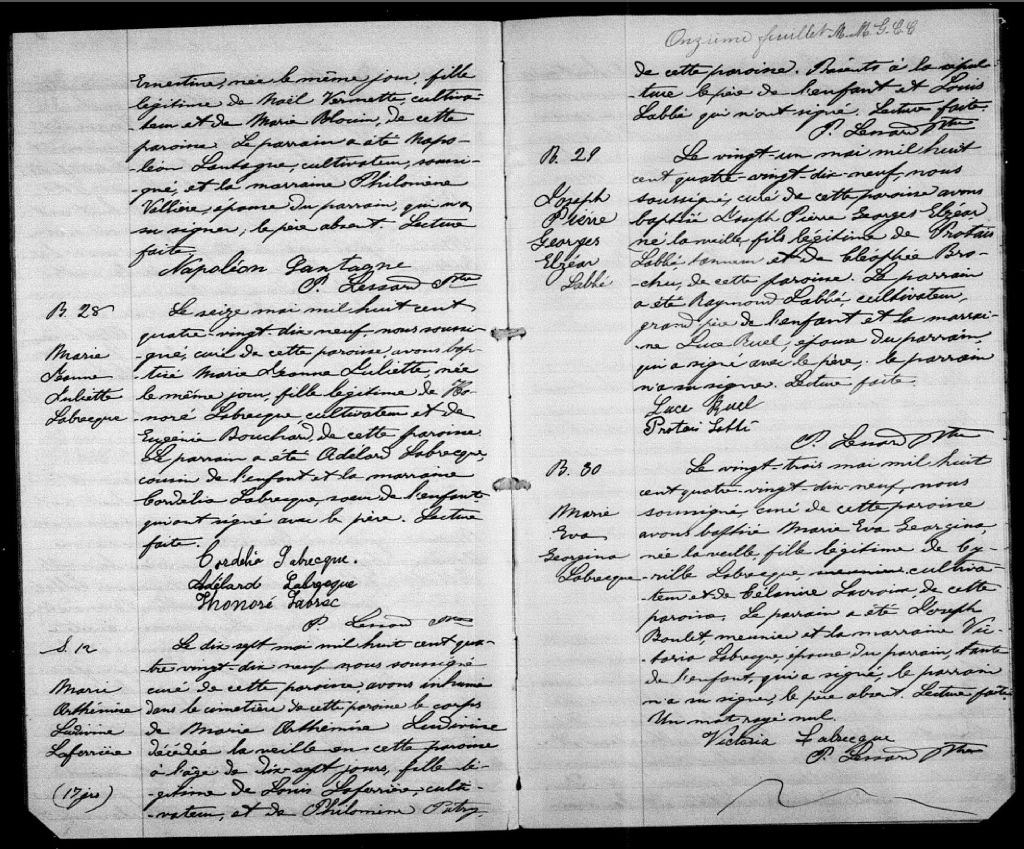 Ernestine, née le même jour, fille
légitime de Noël Vermette, cultiva-
teur et de Marie Blouin, de cette
paroisse. Le parrain a été Napo-
léon Lantagne, cultivateur, soussi-
gné, et la marraine Philomène
Vallière, épouse du parrain, qui n'a
su signer; le père absent. Lecture
faite.
Napoléon Lantagne
P. Lessard Ptre
B. 28
Marie
Jeanne
Juliette
Labrecque
Le seize mai mil huit cent
quatre-vingt-dix-neuf, nous soussi-
gné, curé de cette paroisse, avons bap-
tisé Marie Jeanne Juliette, née
le même jour, fille légitime de Ho-
noré Labrecque cultivateur et de
Eugénie Bouchard, de cette paroisse.
Le parrain a été Adélard Labrecque,
cousin de l'enfant et la marraine
Cordélia Labrecque, sœur de l'enfant
qui ont signé avec le père. Lecture
faite.
Cordelia Labrecque.
Adélard Labrecque
Honoré Labrec
P. Lessard Ptre
S. 12
Marie
Orthémise
Ludivine
Laferrière
(17 jrs)
Le dix-sept mai mil huit cent qua-
tre-vingt-dix-neuf nous soussigné
curé de cette paroisse, avons inhumé
dans le cimetière de cette paroisse le corps
de Marie Orthémise Ludivine
décédée la veille en cette paroisse
à l'âge de dix-sept jours, fille lé-
gitime de Louis Laferrière, culti-
vateur, et de Philomène Patry,
Onzième feuillet M. M. G. C. C
de cette paroisse. Présents à la sépul-
ture le père de l'enfant et Louis
Labbé qui n'ont signé. Lecture faite.
P. Lessard Ptre
B. 29
Joseph
Pierre
Georges
Elzéar
Labbé
Le vingt-un mai mil huit
cent quatre-vingt-dix-neuf, nous
soussigné, curé de cette paroisse avons
baptisé Joseph Pierre Georges Elzéar
né la veille, fils légitime de Protais
Labbé tanneur et de Cléophée Bro-
chu, de cette paroisse. Le parrain
a été Raymond Labbé, cultivateur,
grand-père de l'enfant et la marrai-
ne Luce Ruel, épouse du parrain,
qui a signé avec le père; le parrain
n'a su signer. Lecture faite.
Luce Ruel
Protais Labbé
P. Lessard Ptre
B. 30
Marie
Eva
Georgina
Labrecque
Le vingt-trois mai mil huit
cent quatre-vingt-dix-neuf, nous
soussigné, curé de cette paroisse
avons baptisé Marie Eva Georgina,
née la veille fille légitime de Cy-
rille Labrecque, meunier cultiva-
teur et de Célanire Lacroix de cette
paroisse. Le parrain a été Joseph
Boulet, meunier et la marraine Vic-
toria Labrecque, épouse du parrain, tante
de l'enfant, qui a signé, le parrain
n'a su signer, le père absent. Lecture faite.
Un mot rayé nul.
Victoria Labrecque
P. Lessard Ptre